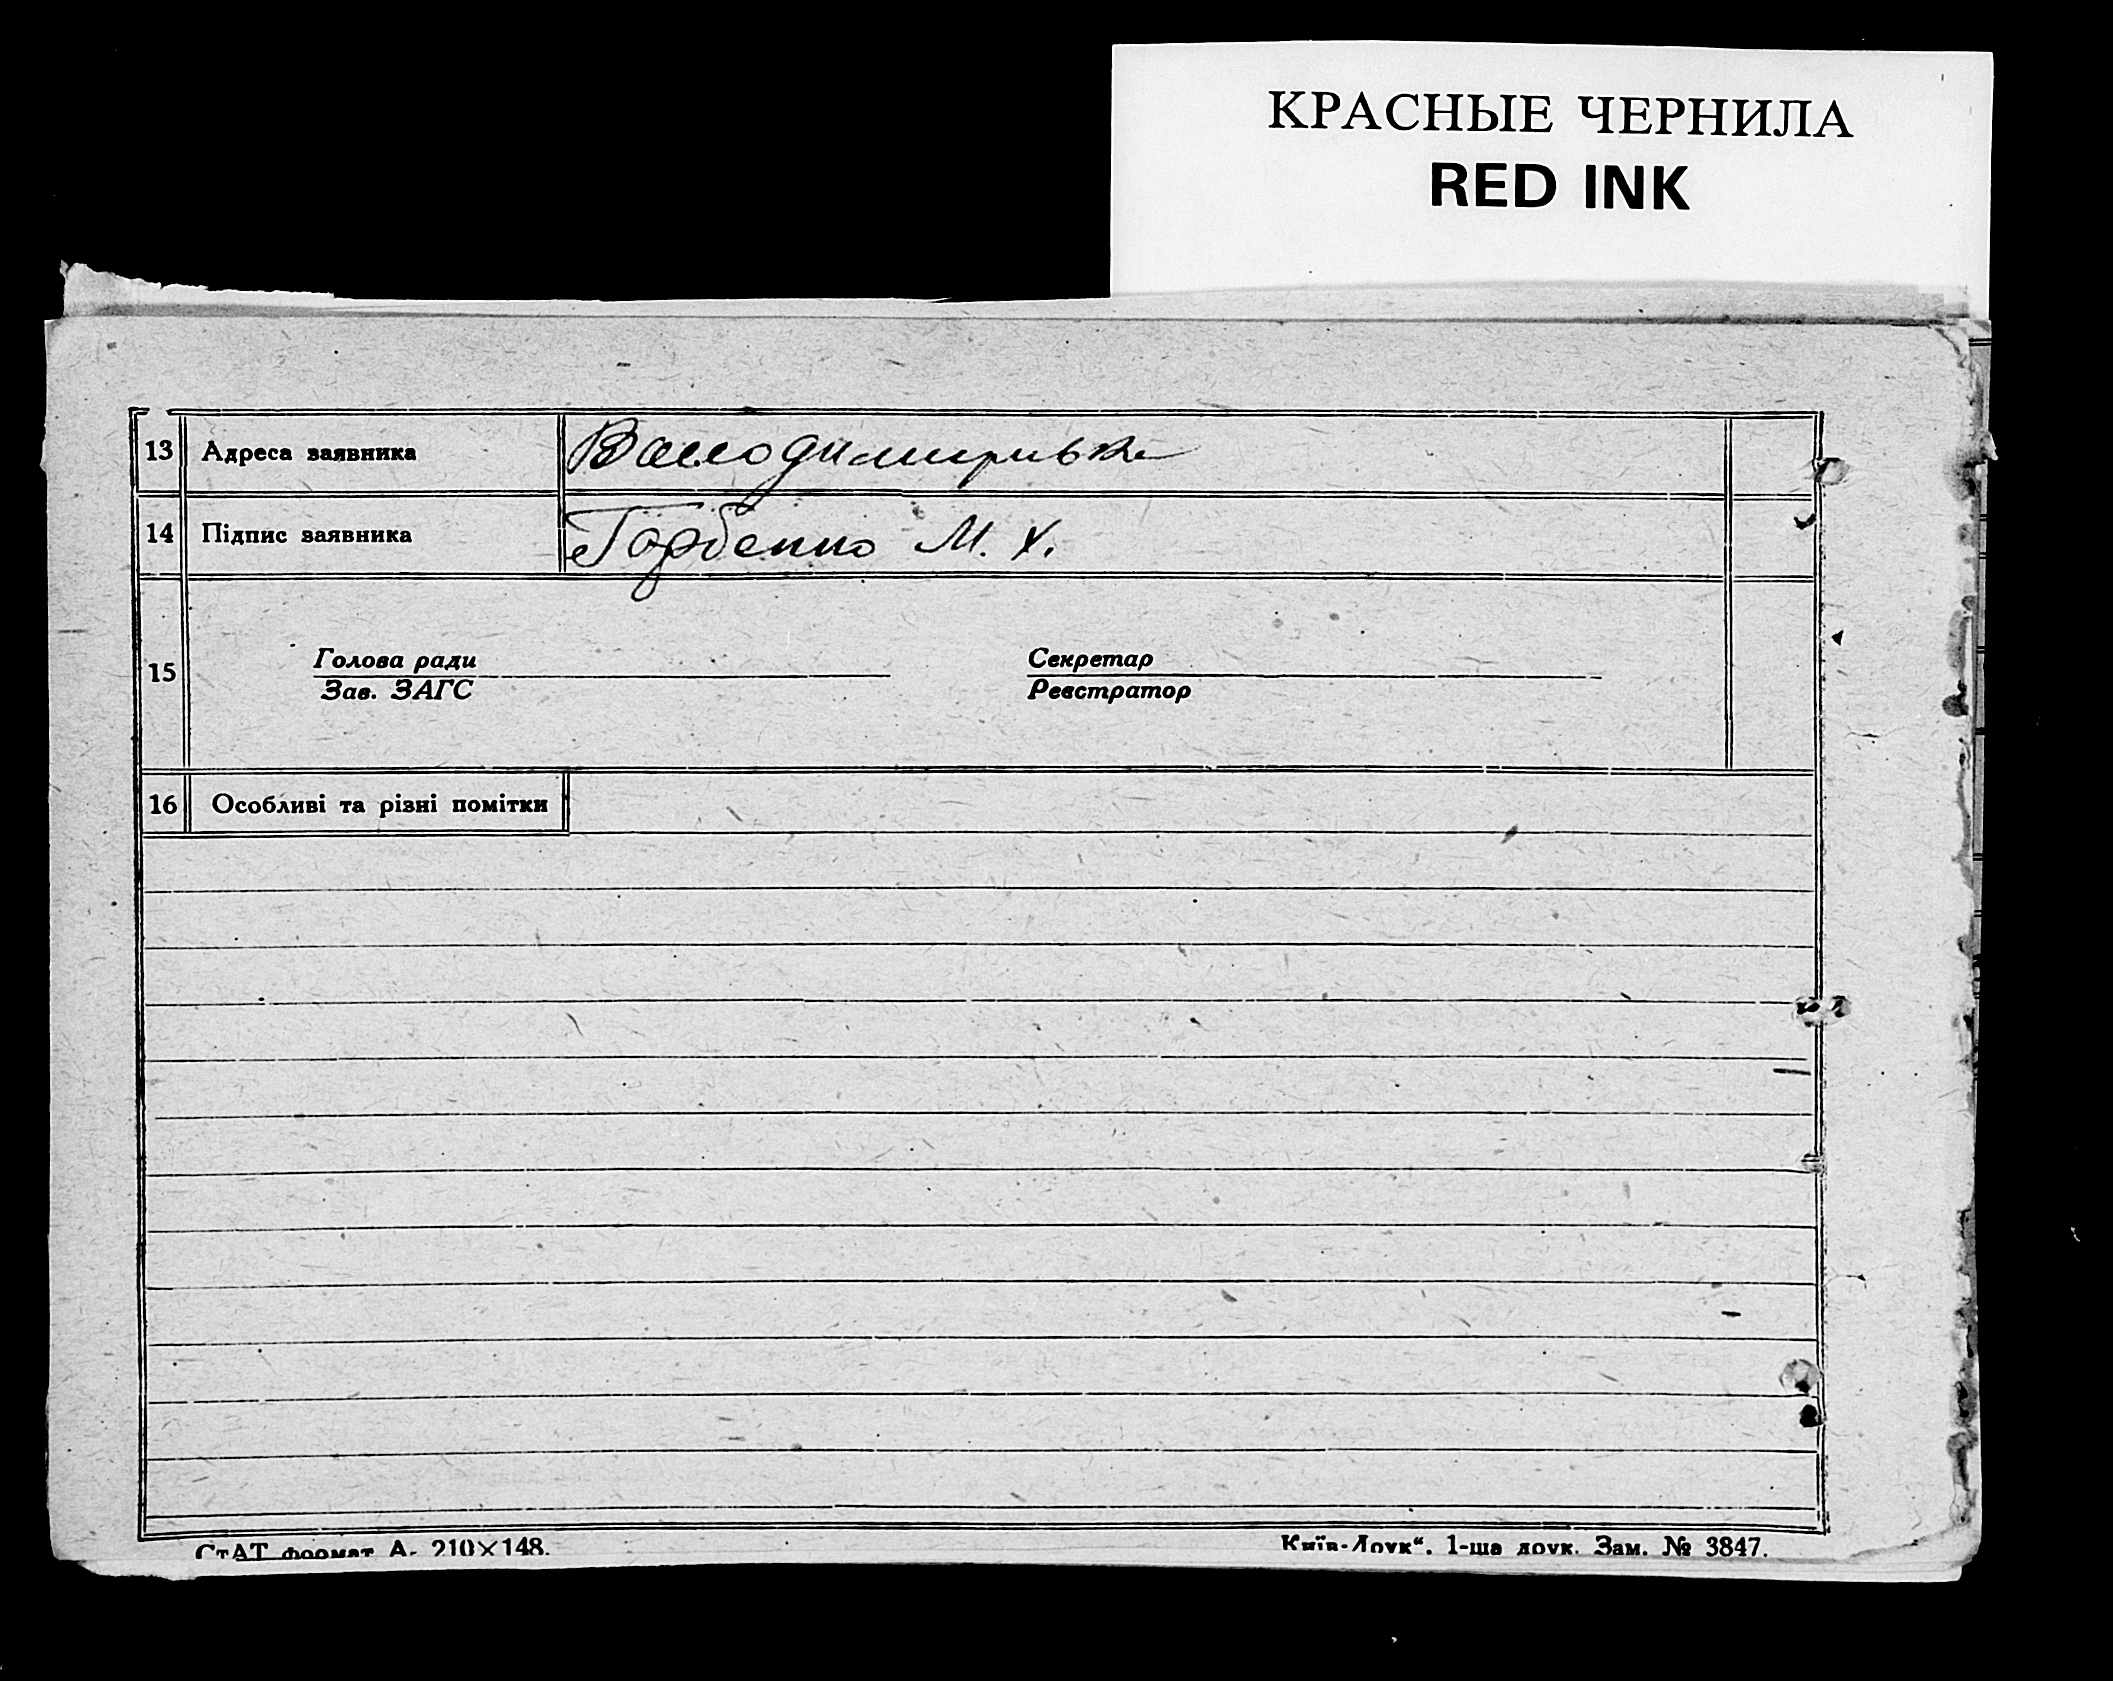 КРАСНЫЕ ЧЕРНИЛА
RED INK
13 Адреса заявника Валодимирівка
14 Підпис заявника Горбенко М. Х.
15 Голова ради Секретар
Зав. ЗАГС Реєстратор
16 Особливі та різні помітки
СтАТ формат А₅ 210×148. Київ-Друк“. 1-ша друк. Зам. № 3847.